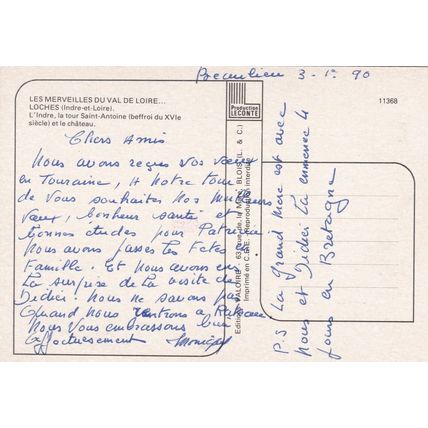 Beaulieu 3-1° 90
LES MERVEILLES DU VAL DE LOIRE...
LOCHES (Indre-et-Loire).
L'Indre, la tour Saint-Antoine (beffroi du XVIe
siècle) et le château.
Production
LECONTE
11368
Chers Amis
Nous avons reçus vos vœux
en Touraine, A notre tour
de Vous souhaiter Nos meilleurs
vœux, bonheur santé et
bonnes études pour Patricia
Nous avons passés les Fetes en
Famille. Et Nous avons eu
La surprise de La visite de
Didier. Nous ne savons pas
Quand nous
Nous Vous embrassons bien
affectueusement Monique
VALOIRE, 63, rue de la MÉDIT, BLOIS (L. & C.)
Imprimé en C.E.E. Reproduction interdite
P.S La Grand Mère est avec
Nous et Didier L'a emmenée 4
jours en Bretagne